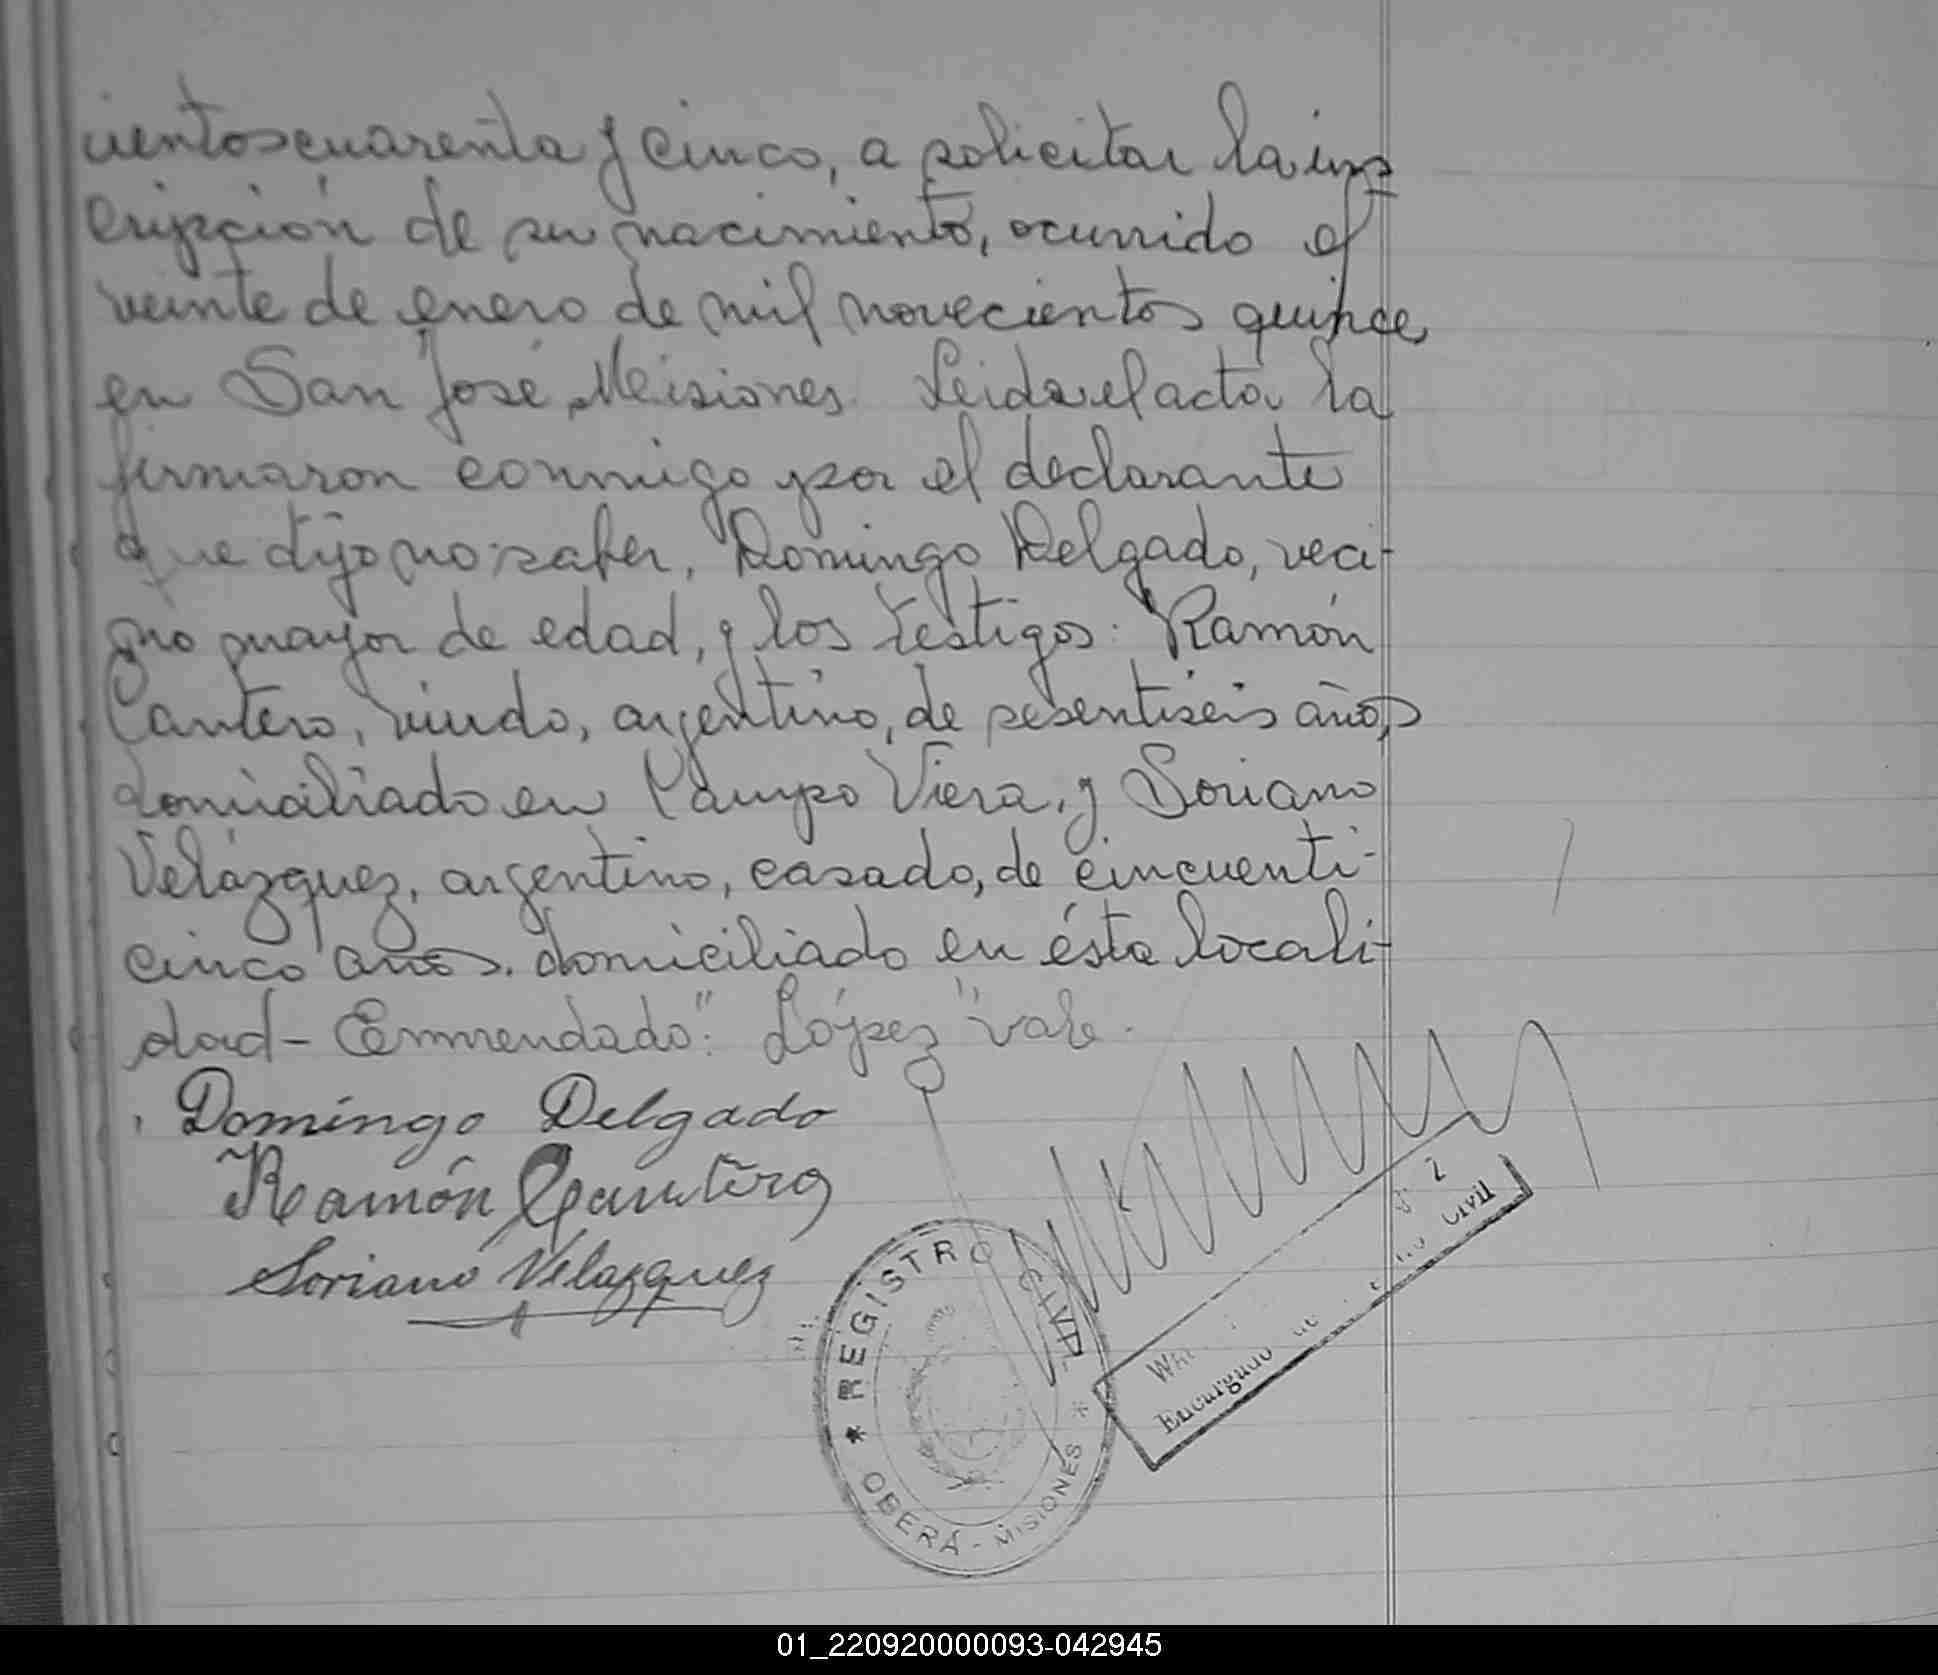 cientos cuarenta y cinco, a solicitar la ins
cripción de su nacimiento, ocurrido el
veinte de enero de mil novecientos quince,
en San José, Misiones. Leida el acta, la
firmaron conmigo por el declarante
que dijo no saber, Domingo Delgado, veci-
no mayor de edad, y los testigos: Ramón
Cantero, viudo, argentino, de sesentiseis años,
domiciliado en Campo Viera, y Soriano
Velázquez, argentino, casado, de cincuenti-
cinco años, domiciliado en ésta locali-
dad- Enmendado: "López" vale.
Domingo Delgado
Ramón Cantero
Soriano Velazquez
REGISTRO CIVIL
* OBERÁ - MISIONES *
Encargado Civil
01_220920000093-042945